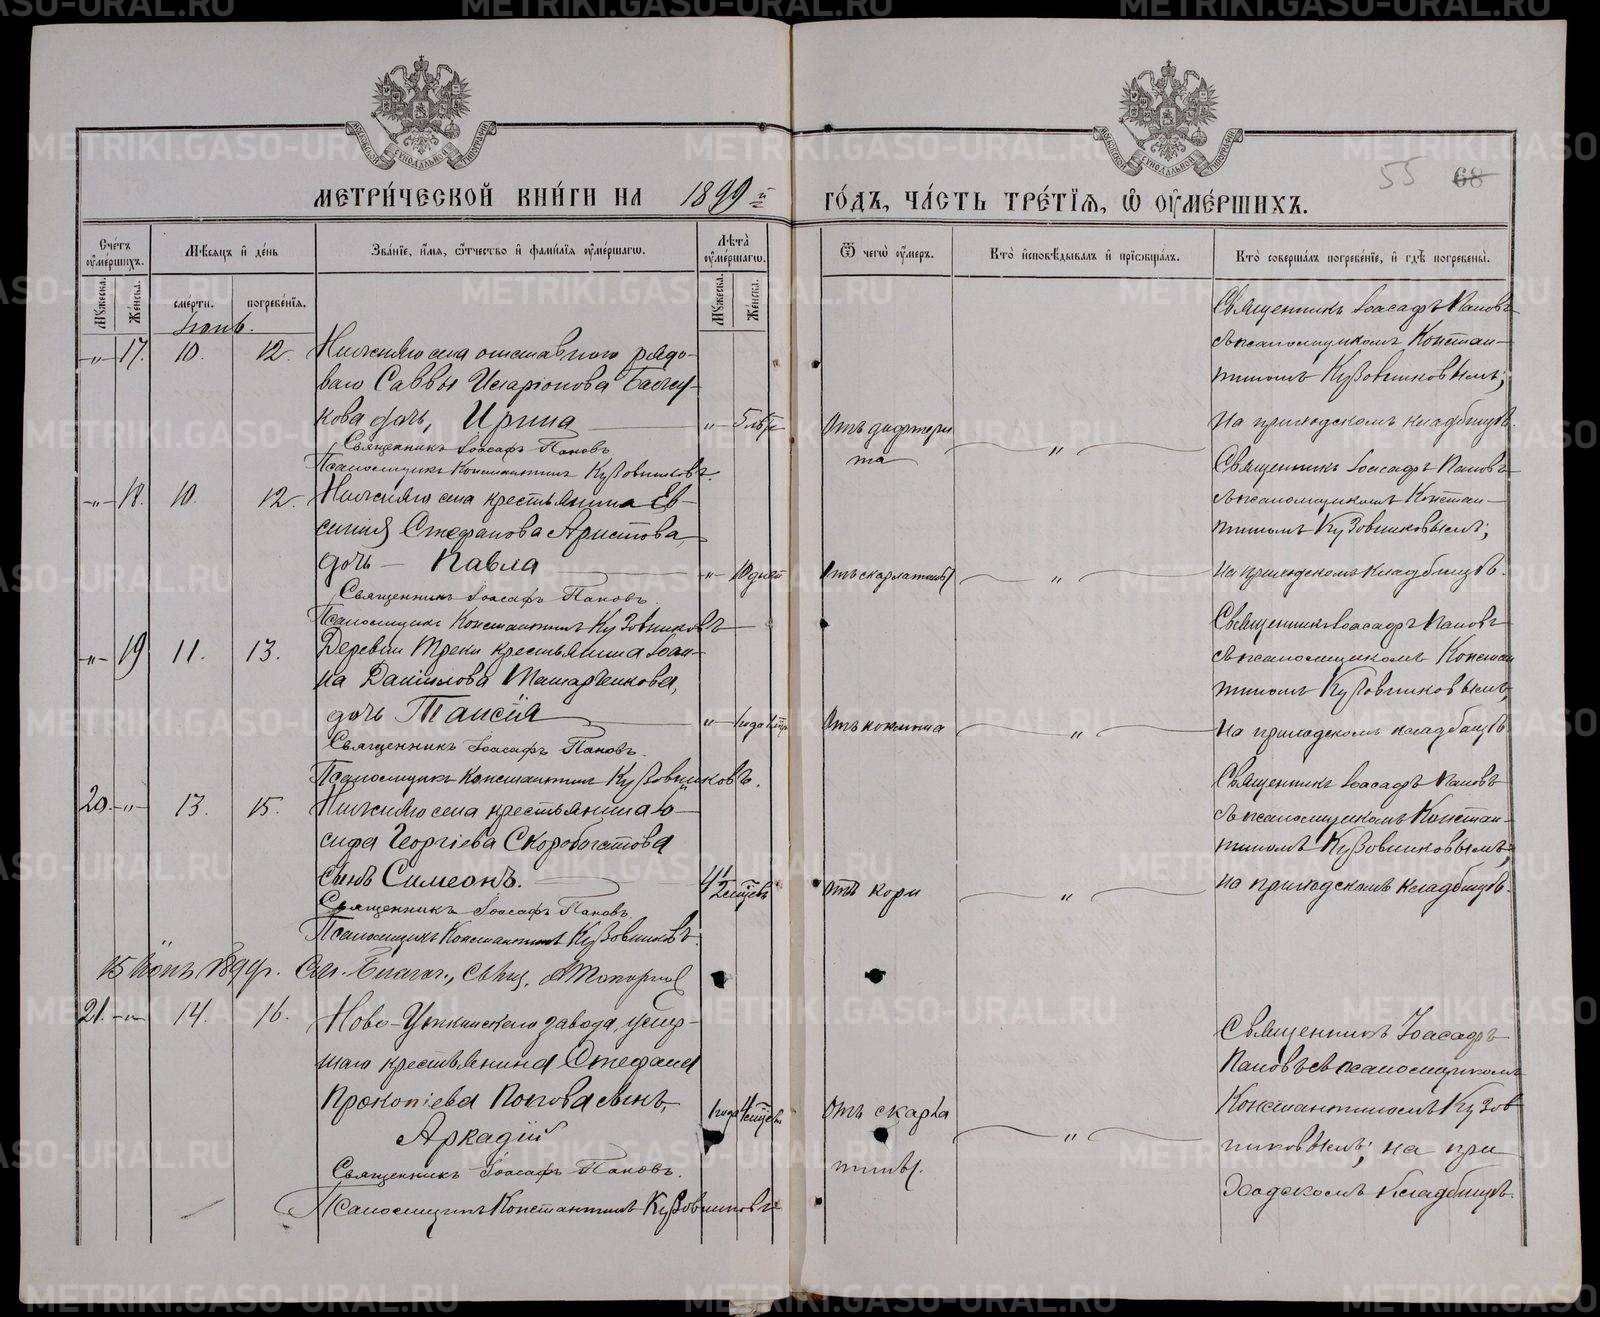 МОСКОВСКОЙ СѴНОДАЛЬНОЙ ТИПОГРАФІИ
МОСКОВСКОЙ СѴНОДАЛЬНОЙ ТИПОГРАФІИ
МЕТРИ́ЧЕСКОЙ КНИ́ГИ НА 1899 й
ГО́ДЪ, ЧА́СТЬ ТРЕ́ТЇѦ, Ѿ ОУ҆МЕ́РШИХЪ.
55 68
Сче́тъ оу҆ме́ршихъ.
Мѣ́сѧцъ и҆ де́нь
Зва́нїе, и҆́мѧ, ѻ҆́тчество и҆ фами́лїѧ оу҆ме́ршагѡ.
Лѣ́та оу҆ме́ршагѡ.
Ѿ чегѡ̀ оу҆́меръ.
Кто̀ и҆сповѣ́дывалъ и҆ прїѡбща́лъ.
Кто̀ соверша́лъ погребе́нїе, и҆ гдѣ̀ погребены̀.
Му́жеска.
Же́нска.
сме́рти.
погребе́нїѧ.
Му́жеска.
Же́нска.
Іюнь.
-„- 17. 10. 12.
села отставного рядо-
ваго Саввы Иларіонова
кова дочь, Ирина
Священникъ Іоасафъ Пановъ
Псаломщикъ Константинъ Кузовниковъ.
„ 5 лѣтъ
Отъ дифтери
та
„
Священникъ Іоасафъ Пановъ
съ псаломщикомъ Констан-
тиномъ Кузовниковымъ;
на приходскомъ кладбищѣ.
-„- 18. 10. 12.
села крестьянина Ев-
Стефанова Аристова,
дочь — Павла
Священникъ Іоасафъ Пановъ.
Псаломщикъ Константинъ Кузовниковъ
„ 10 дней
Отъ скарлатины
„
Священникъ Іоасафъ Пановъ
съ псаломщикомъ Констан-
тиномъ Кузовниковымъ;
на приходскомъ кладбищѣ.
-„- 19 11. 13.
Деревни Треки крестьянина Іоан-
на Даніилова
дочь Таисія
Священникъ Іоасафъ Пановъ.
Псаломщикъ Константинъ Кузовниковъ.
„
Отъ коклюша
„
Священникъ Іоасафъ Пановъ
съ псаломщикомъ Констан
тиномъ Кузовниковымъ,
на приходскомъ кладбищѣ
20. -„- 13. 15.
села крестьянина Іо-
сифа Георгіева Скоробогатова
сынъ Симеонъ.
Священникъ Іоасафъ Пановъ
Псаломщикъ Константинъ Кузовниковъ.
Отъ кори
„
Священникъ Іоасафъ Пановъ
съ псаломщикомъ Констан-
тиномъ Кузовниковымъ,
на приходскомъ кладбищѣ.
15 Іюнь 1899 г.
21. -„- 14. 16.
Ново-Уткинского завода, умер-
шаго крестьянина Стефана
Прокопіева Попова сынъ,
Аркадій
Священникъ Іоасафъ Пановъ.
Псаломщикъ Константинъ Кузовниковъ
Отъ скарла
тины.
„
Священникъ Іоасафъ
Пановъ съ псаломщикомъ
Константиномъ Кузов
никовымъ; на при
ходскомъ кладбищѣ
METRIKI.GASO-URAL.RU